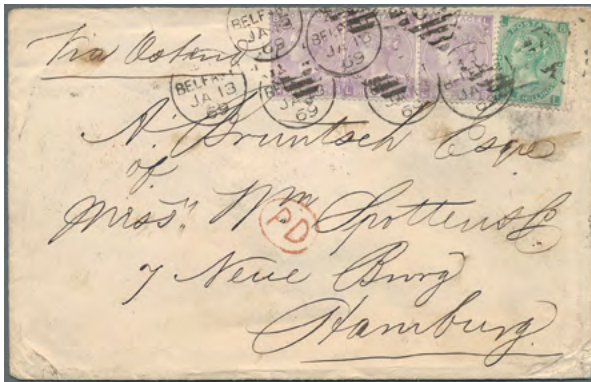 Via Ostend
BELFAST
JA 13
69
BELFAST
JA 13
69
BELFAST
JA 13
69
69
69
69
POSTAGE
A. Bruntsch Esqre
of
Messrs Wm Spottens
PD
7 Neue Burg
Hamburg.